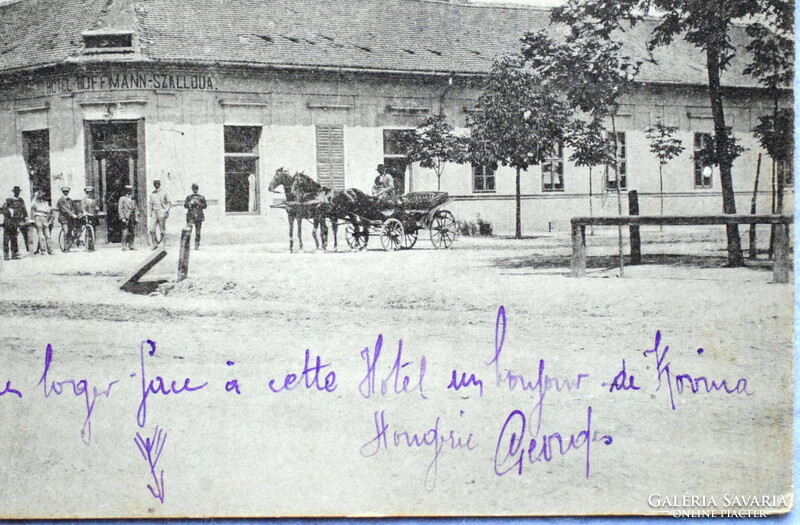 HOTEL HOFFMANN-SZÁLLODA.
loger face à cette Hôtel un bonjour de Kovina
Hongrie Georges
GALÉRIA SAVARIA
ONLINE PIACTÉR